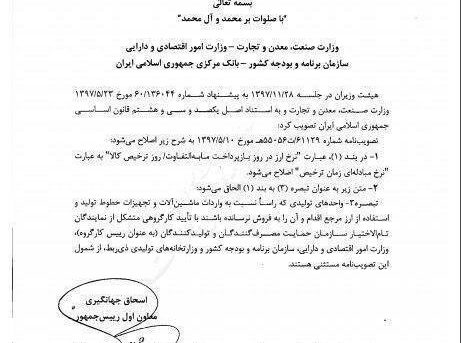 بسمه تعالی
"با صلوات بر محمد و آل محمد"
وزارت صنعت، معدن و تجارت – وزارت امور اقتصادی و دارایی
سازمان برنامه و بودجه کشور – بانک مرکزی جمهوری اسلامی ایران
هیئت وزیران در جلسه ۱۳۹۷/۱۱/۲۸ به پیشنهاد شماره ۶۰/۱۳۶۰۴۴ مورخ ۱۳۹۷/۵/۲۳
وزارت صنعت، معدن و تجارت و به استناد اصل یکصد و سی و هشتم قانون اساسی
جمهوری اسلامی ایران تصویب کرد:
تصویب‌نامه شماره ۶۱۱۲۹/ت۵۵۰۵۶هـ مورخ ۱۳۹۷/۵/۱۰ به شرح زیر اصلاح می‌شود:
۱– در بند (۱)، عبارت "نرخ ارز در روز بازپرداخت مابه‌التفاوت/ روز ترخیص کالا" به عبارت
"نرخ مبادله‌ای زمان ترخیص" اصلاح می‌شود.
۲– متن زیر به عنوان تبصره (۳) به بند (۱) الحاق می‌شود:
تبصره۳– واحدهای تولیدی که رأساً نسبت به واردات ماشین‌آلات و تجهیزات خطوط تولید و
استفاده از ارز مرجع اقدام و آن را به فروش نرسانده باشند با تأیید کارگروهی متشکل از نمایندگان
تام‌الاختیار سازمان حمایت مصرف‌کنندگان و تولیدکنندگان (به عنوان رییس کارگروه)،
وزارت امور اقتصادی و دارایی، سازمان برنامه و بودجه کشور و وزارتخانه‌های تولیدی ذی‌ربط، از شمول
این تصویب‌نامه مستثنی هستند.
اسحاق جهانگیری
معاون اول رییس‌جمهور